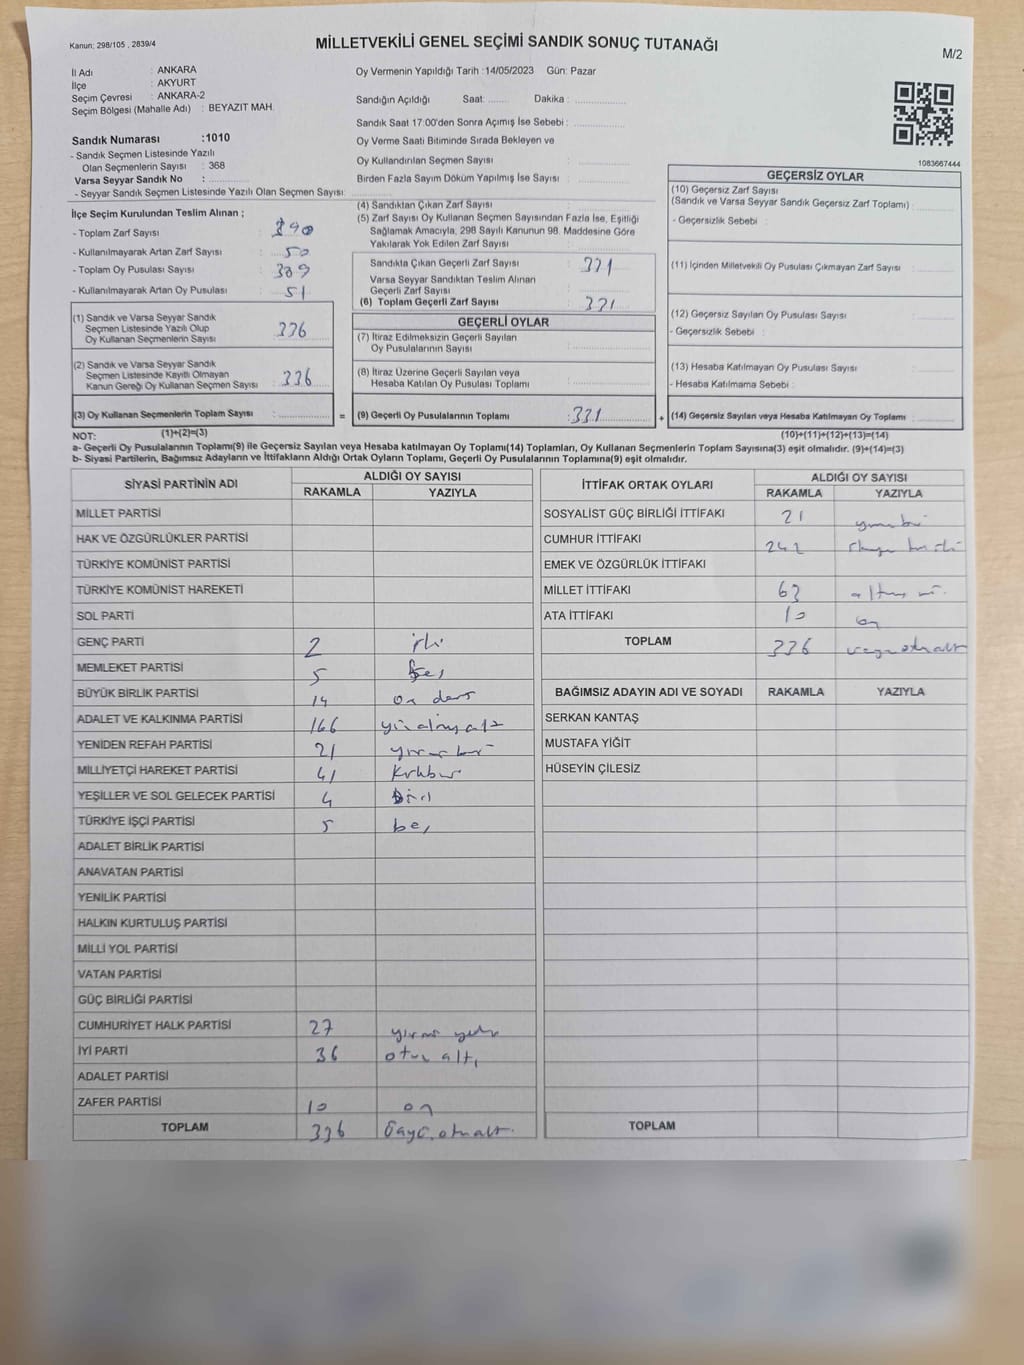 Kanun: 298/105 , 2839/4
MİLLETVEKİLİ GENEL SEÇİMİ SANDIK SONUÇ TUTANAĞI
M/2
İl Adı : ANKARA
İlçe : AKYURT
Seçim Çevresi : ANKARA-2
Seçim Bölgesi (Mahalle Adı) : BEYAZIT MAH.
Sandık Numarası :1010
- Sandık Seçmen Listesinde Yazılı
Olan Seçmenlerin Sayısı : 368
Varsa Seyyar Sandık No :
- Seyyar Sandık Seçmen Listesinde Yazılı Olan Seçmen Sayısı:
Oy Vermenin Yapıldığı Tarih :14/05/2023 Gün: Pazar
Sandığın Açıldığı Saat: Dakika :
Sandık Saat 17:00'den Sonra Açımış İse Sebebi :
Oy Verme Saati Bitiminde Sırada Bekleyen ve
Oy Kullandırılan Seçmen Sayısı :
Birden Fazla Sayım Döküm Yapılmış İse Sayısı :
1083667444
İlçe Seçim Kurulundan Teslim Alınan ;
- Toplam Zarf Sayısı : 390
- Kullanılmayarak Artan Zarf Sayısı : 50
- Toplam Oy Pusulası Sayısı : 389
- Kullanılmayarak Artan Oy Pusulası : 51
(1) Sandık ve Varsa Seyyar Sandık
Seçmen Listesinde Yazılı Olup
Oy Kullanan Seçmenlerin Sayısı : 336
(2) Sandık ve Varsa Seyyar Sandık
Seçmen Listesinde Kayıtlı Olmayan
Kanun Gereği Oy Kullanan Seçmen Sayısı : 336
(3) Oy Kullanan Seçmenlerin Toplam Sayısı :
(1)+(2)=(3)
(4) Sandıktan Çıkan Zarf Sayısı :
(5) Zarf Sayısı Oy Kullanan Seçmen Sayısından Fazla İse, Eşitliği
Sağlamak Amacıyla, 298 Sayılı Kanunun 98. Maddesine Göre
Yakılarak Yok Edilen Zarf Sayısı :
Sandıkta Çıkan Geçerli Zarf Sayısı : 331
Varsa Seyyar Sandıktan Teslim Alınan
Geçerli Zarf Sayısı :
(6) Toplam Geçerli Zarf Sayısı : 331
GEÇERLİ OYLAR
(7) İtiraz Edilmeksizin Geçerli Sayılan
Oy Pusulalarının Sayısı :
(8) İtiraz Üzerine Geçerli Sayılan veya
Hesaba Katılan Oy Pusulası Toplamı :
= (9) Geçerli Oy Pusulalarının Toplamı : 331
GEÇERSİZ OYLAR
(10) Geçersiz Zarf Sayısı
(Sandık ve Varsa Seyyar Sandık Geçersiz Zarf Toplamı) :
- Geçersizlik Sebebi :
(11) İçinden Milletvekili Oy Pusulası Çıkmayan Zarf Sayısı :
(12) Geçersiz Sayılan Oy Pusulası Sayısı :
- Geçersizlik Sebebi :
(13) Hesaba Katılmayan Oy Pusulası Sayısı :
- Hesaba Katılmama Sebebi :
+ (14) Geçersiz Sayılan veya Hesaba Katılmayan Oy Toplamı :
(10)+(11)+(12)+(13)=(14)
NOT:
a- Geçerli Oy Pusulalarının Toplamı(9) ile Geçersiz Sayılan veya Hesaba katılmayan Oy Toplamı(14) Toplamları, Oy Kullanan Seçmenlerin Toplam Sayısına(3) eşit olmalıdır. (9)+(14)=(3)
b- Siyasi Partilerin, Bağımsız Adayların ve İttifakların Aldığı Ortak Oyların Toplamı, Geçerli Oy Pusulalarının Toplamına(9) eşit olmalıdır.
SİYASİ PARTİNİN ADI ALDIĞI OY SAYISI
RAKAMLA YAZIYLA
MİLLET PARTİSİ
HAK VE ÖZGÜRLÜKLER PARTİSİ
TÜRKİYE KOMÜNİST PARTİSİ
TÜRKİYE KOMÜNİST HAREKETİ
SOL PARTİ
GENÇ PARTİ 2 iki
MEMLEKET PARTİSİ 5 beş
BÜYÜK BİRLİK PARTİSİ 14 on dört
ADALET VE KALKINMA PARTİSİ 166
YENİDEN REFAH PARTİSİ 21 yirmi bir
MİLLİYETÇİ HAREKET PARTİSİ 41 Kırkbir
YEŞİLLER VE SOL GELECEK PARTİSİ 4
TÜRKİYE İŞÇİ PARTİSİ 5 beş
ADALET BİRLİK PARTİSİ
ANAVATAN PARTİSİ
YENİLİK PARTİSİ
HALKIN KURTULUŞ PARTİSİ
MİLLİ YOL PARTİSİ
VATAN PARTİSİ
GÜÇ BİRLİĞİ PARTİSİ
CUMHURİYET HALK PARTİSİ 27 yirmi yedi
İYİ PARTİ 36 otuz altı
ADALET PARTİSİ
ZAFER PARTİSİ 10 on
TOPLAM 336
İTTİFAK ORTAK OYLARI ALDIĞI OY SAYISI
RAKAMLA YAZIYLA
SOSYALİST GÜÇ BİRLİĞİ İTTİFAKI 21
CUMHUR İTTİFAKI 242
EMEK VE ÖZGÜRLÜK İTTİFAKI
MİLLET İTTİFAKI 63
ATA İTTİFAKI 10 on
TOPLAM 336
BAĞIMSIZ ADAYIN ADI VE SOYADI RAKAMLA YAZIYLA
SERKAN KANTAŞ
MUSTAFA YİĞİT
HÜSEYİN ÇİLESİZ
TOPLAM